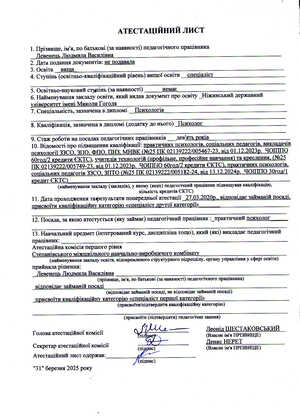 АТЕСТАЦІЙНИЙ ЛИСТ
1. Прізвище, ім'я, по батькові (за наявності) педагогічного працівника
Левенець Людмила Василівна
2. Дата подання документів: не подавала
3. Освіта вища
4. Ступінь (освітньо-кваліфікаційний рівень) вищої освіти спеціаліст
5. Освітньо-науковий ступінь (за наявності) немає
6. Найменування закладу освіти, який видав документ про освіту Ніжинський державний
університет імені Миколи Гоголя
7. Спеціальність, зазначена в дипломі Психологія
8. Кваліфікація, зазначена в дипломі (додатку до нього) Психолог
9. Стаж роботи на посадах педагогічних працівників дев'ять років
10. Відомості про підвищення кваліфікації: практичних психологів, соціальних педагогів, викладачів
психології ЗЗСО, ЗПО, ФПО, ПТО, МННК (№25 ПК 02139222/005467-23, від 01.12.2023р. ЧОІППО
60год/2 кредити ЄКТС), учителів технологій (профільне, професійне навчання) та креслення, (№25
ПК 02139222/005749-23, від 01.12.2023р. ЧОІППО 60год/2 кредити ЄКТС), практичних психологів,
соціальних педагогів ЗЗСО, ЗПТО (№25 ПК 02139222/005182-24, від 13.12.2024р. ЧОІППО 30год/1
кредит ЄКТС)
(найменування закладу (закладів), у якому (яких) педагогічний працівник підвищував кваліфікацію,
кількість кредитів ЄКТС)
11. Дата проходження (результати) попередньої атестації 27.03.2020р., відповідає займаній посаді,
присвоїти кваліфікаційну категорію «спеціаліст другої категорії»
12. Посада, за якою атестується (яку займає) педагогічний працівник практичний психолог
13. Навчальний предмет (інтегрований курс, дисципліна тощо), який (які) викладає педагогічний
працівник
Атестаційна комісія першого рівня
прийняла рішення:
Левенець Людмила Василівна
(прізвище, ім'я, по батькові (за наявності) педагогічного працівника)
відповідає займаній посаді
(відповідає займаній посаді, не відповідає займаній посаді)
присвоїти кваліфікаційну категорію «спеціаліст першої категорії»
(присвоїти/підтвердити кваліфікаційну категорію)
(присвоїти (підтвердити) педагогічне звання)
Голова атестаційної комісії
(підпис)
Леонід ШЕСТАКОВСЬКИЙ
(Власне ім'я ПРІЗВИЩЕ)
Секретар атестаційної комісії
(підпис)
Денис НЕРЕТ
(Власне ім'я ПРІЗВИЩЕ)
Атестаційний лист одержав:
(підпис)
"31" березня 2025 року